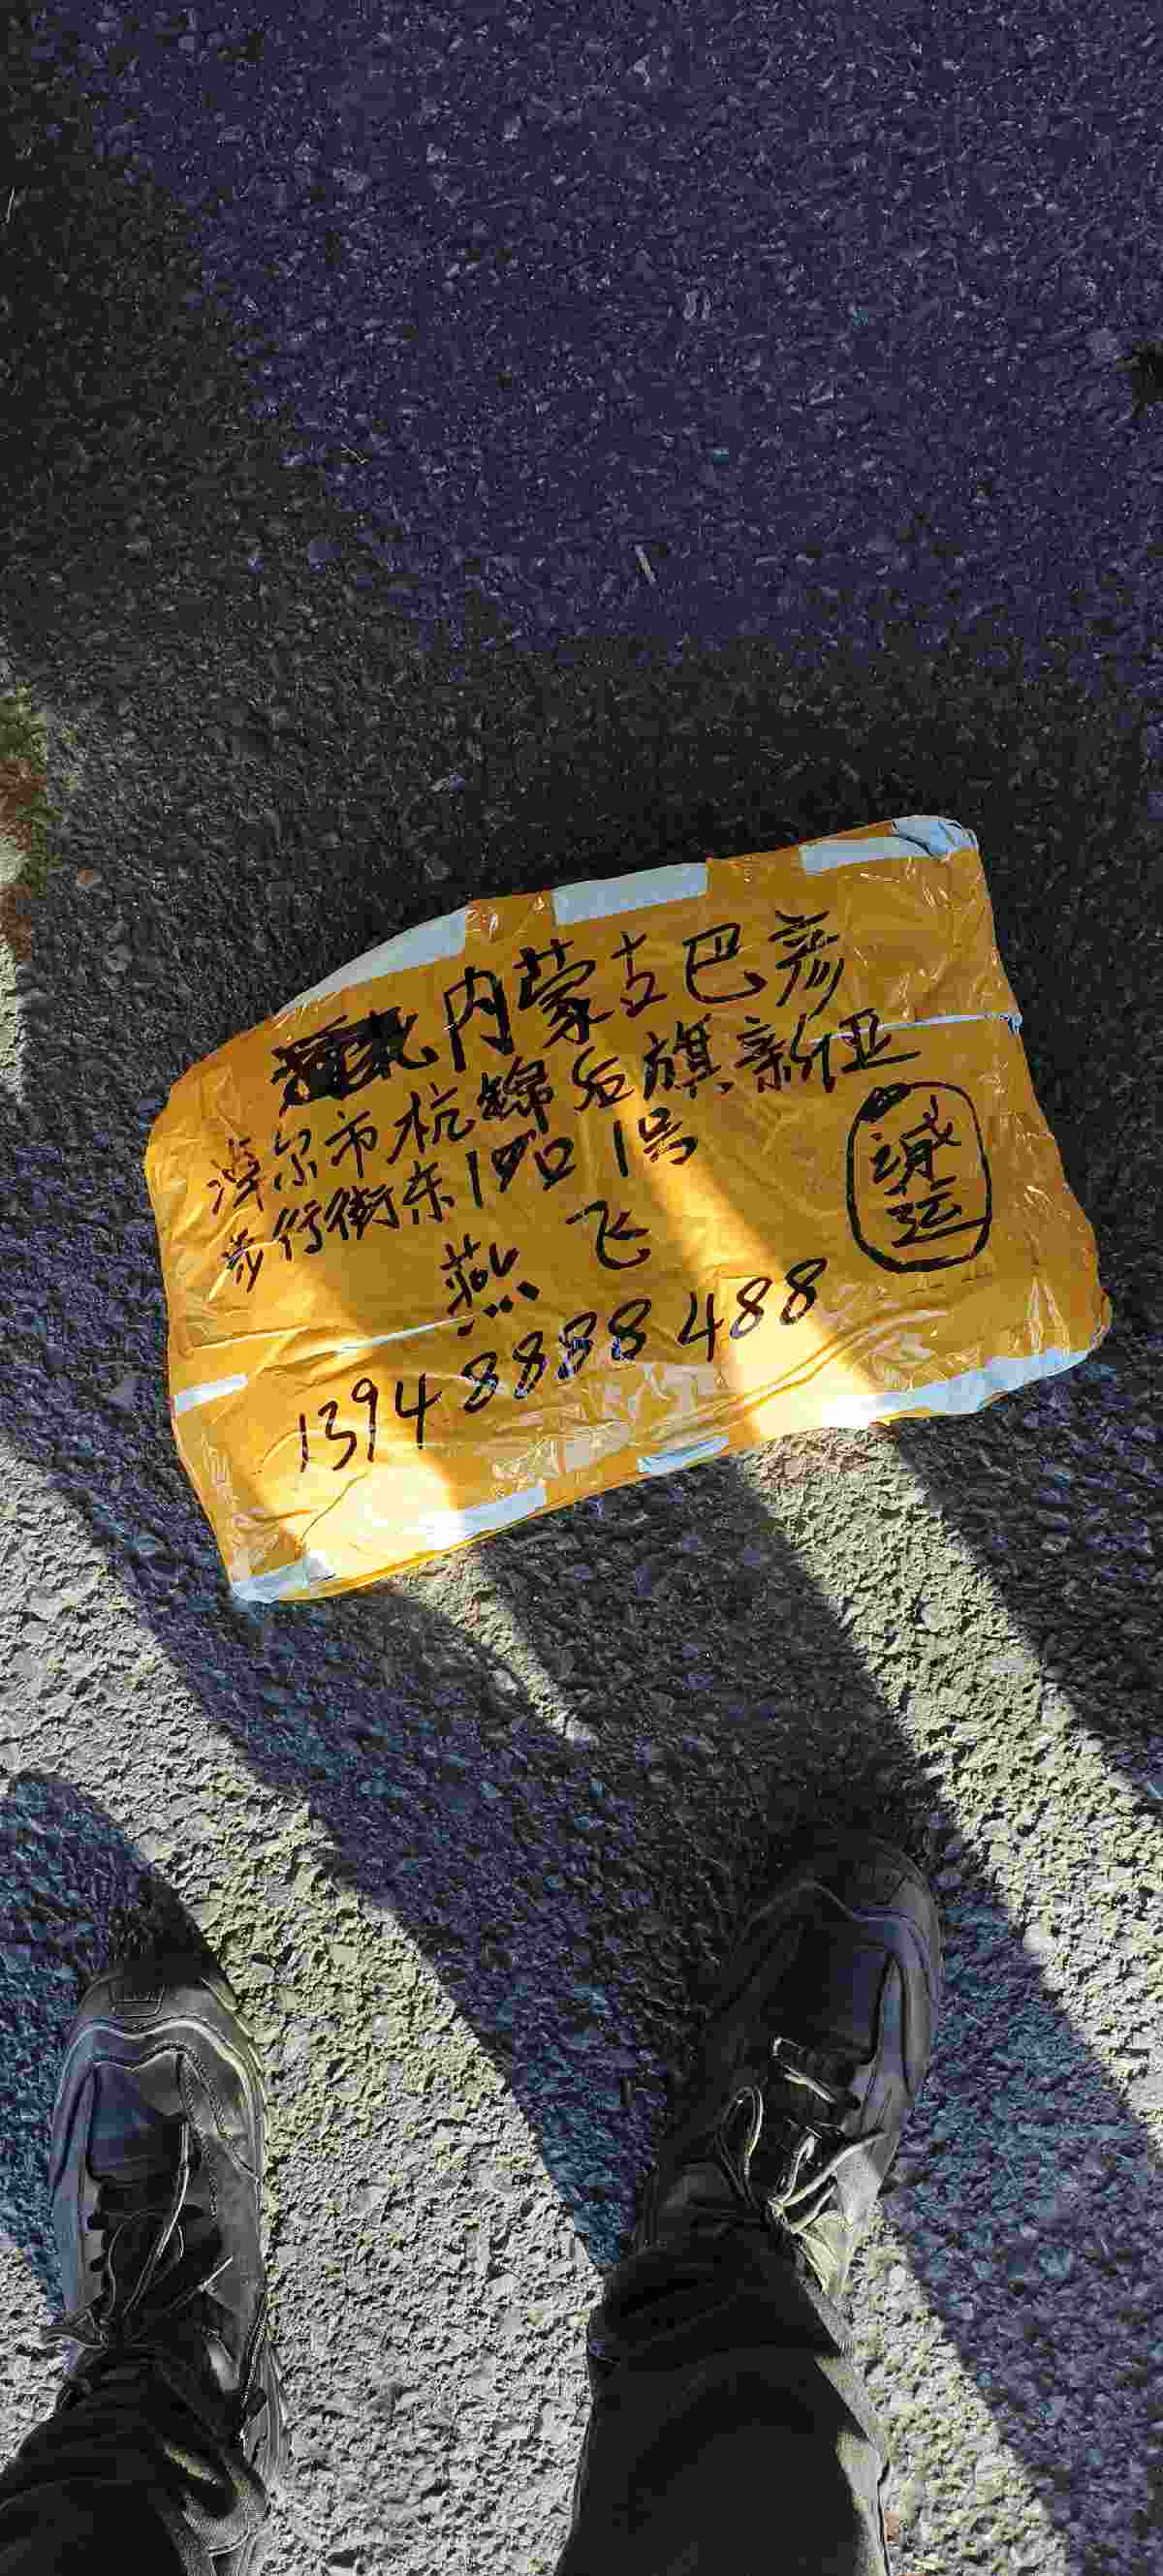 内蒙古巴彦
淖尔市杭锦后旗新亚
步行街东1号口1号
燕飞
13948888488
诚
运